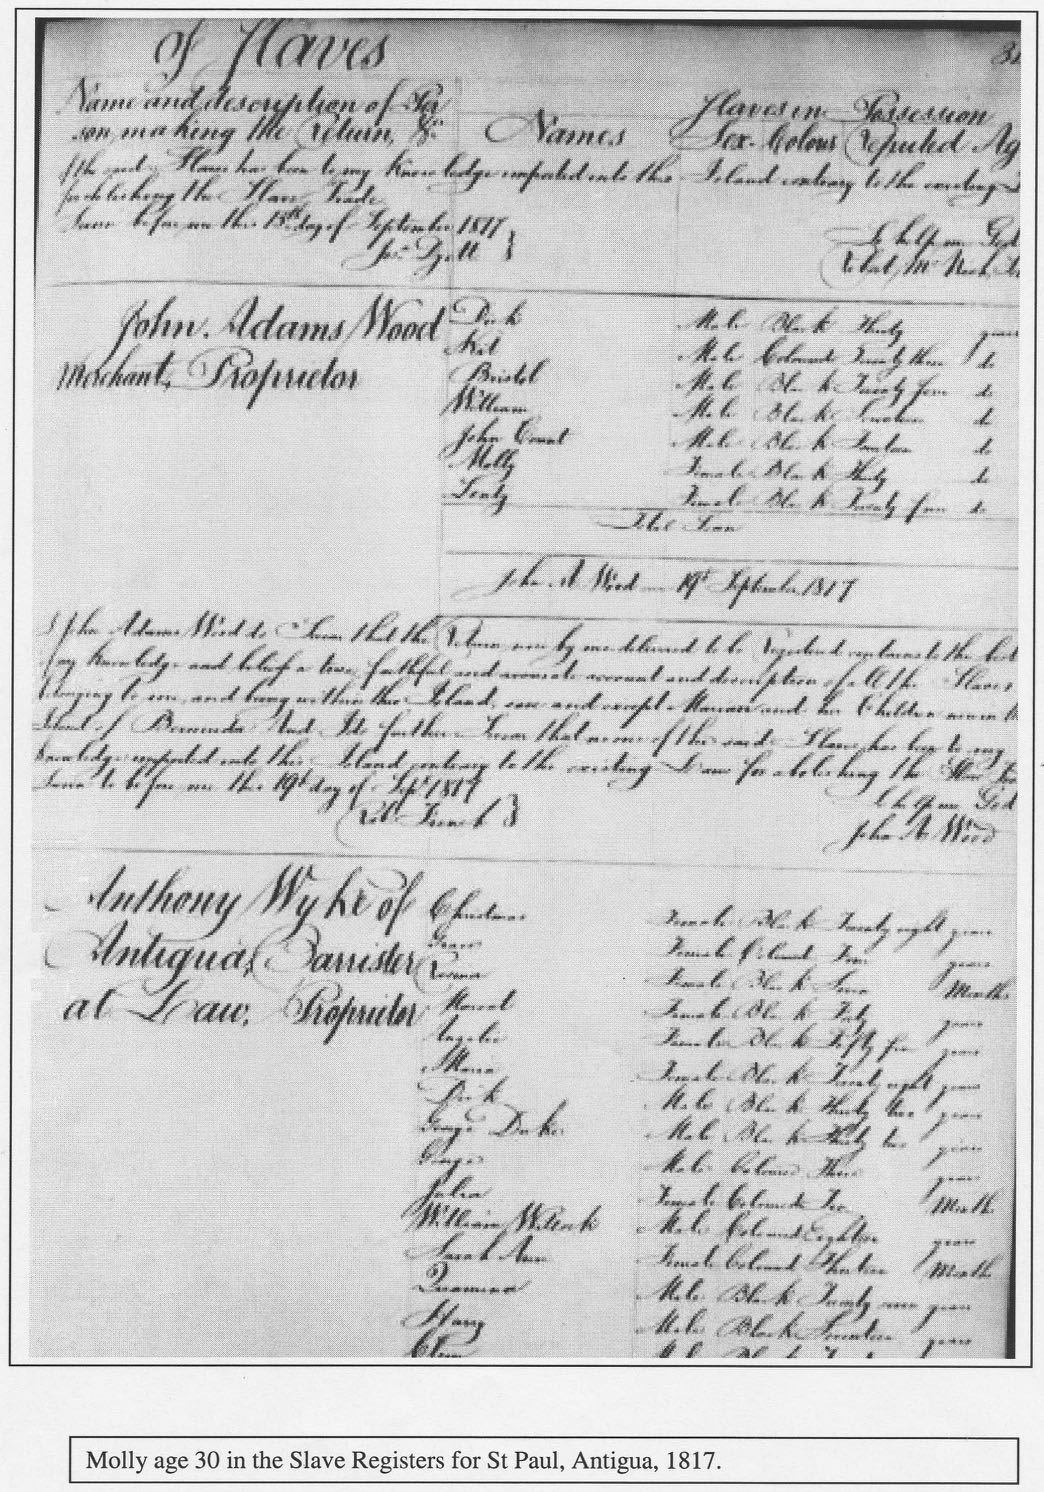 of Slaves
Name and description of Per
son making the Return, &c
Names
Slaves in Possession
Sex. Colour Reputed Ag
of the said Slaves has been to my Knowledge imported into this Island contrary to the existing
for abolishing the Slave Trade
Sworn before me this 13th day of September 1817
So help me God
John Adams Wood
Merchant, Proprietor
Dick Male Black Thirty years
Male Coloured Twenty three do
Bristol Male Black Twenty four do
William Male Black do
John Male Black do
Molly Female Black Thirty do
Female Black Twenty four do
Total Seven
John A Wood 19th September 1817
I John Adams Wood do Swear that the Return now by me delivered to be Registered contains to the best
of my Knowledge and belief a true, faithful and accurate account and description of all the Slaves
belonging to me, and being within this Island, save and except and her Children now in the
Island of Bermuda And I do further Swear that none of the said Slaves has been to my
knowledge imported into this Island contrary to the existing Laws for abolishing the Slave
Sworn to before me this 19th day of Sept 1817
So help me God
John A Wood
Anthony Wyke of
Antigua, Barrister
at Law, Proprietor
Christmas Female Black Twenty eight years
Grace Female Coloured years
Female Black Months
Female Black years
Angelic Female Black Fifty years
Maria Female Black Twenty eight years
Dick Male Black Thirty years
George Male Black Thirty two years
George Male Coloured Three years
Julia Female Coloured Months
William Male Coloured Eighteen years
Sarah Ann Female Coloured Months
Quamina Male Black Twenty years
Harry Male Black years
Molly age 30 in the Slave Registers for St Paul, Antigua, 1817.